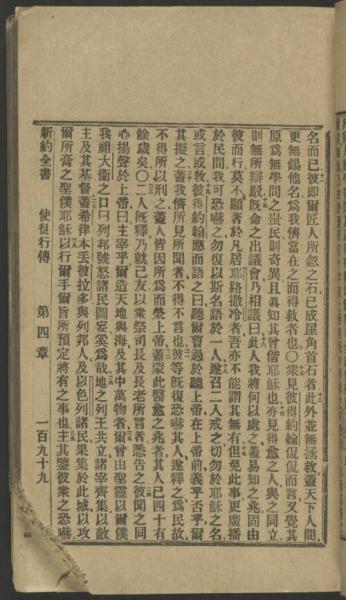 名而已彼即爾匠人所忽之石已成屋角首石者此外並無拯救蓋天下人間
更無錫他名爲我儕當在之而得救者也〇衆見彼得約翰侃侃而言又覺其
原爲無學問之蚩民則奇異且眞知其曾偕耶穌也亦見得愈之人與之同立
則無所辯駁旣命之出議會乃相議曰此人我將何以處之蓋易知之兆固由
彼而行莫不顯著於凡居耶路撒冷者吾亦不能謂其無有但免此事更廣播
於民間我可恐嚇之勿復以斯名語於一人遂召二人戒之切勿於耶穌之名
或言或敎彼得約翰應而語之曰聽爾曹過於聽上帝在上帝前義乎否乎爾
其擬之蓋我儕所見所聞者不得不言也彼等旣復恐嚇其人遂釋之爲民故
不得所以刑之蓋人皆因所爲而榮上帝蓋蒙此醫愈之兆者其人已四十有
餘歲矣〇二人旣釋乃就己友以衆祭司長及長老所言者悉告之彼聞之同
心揚聲於上帝曰主宰乎爾造天地與海及其中萬物者爾曾由聖靈以爾僕
我祖大衛之口曰列邦號怒諸民圖妄奚爲哉地之列王共立諸宰齊集以敵
主及其基督蓋希律本丟彼拉多與列邦人及以色列諸民果集於此城以攻
爾所膏之聖僕耶穌以行爾手爾旨所預定將有之事也主其鑒彼衆之恐嚇
新約全書 使徒行傳 第四章 一百九十九